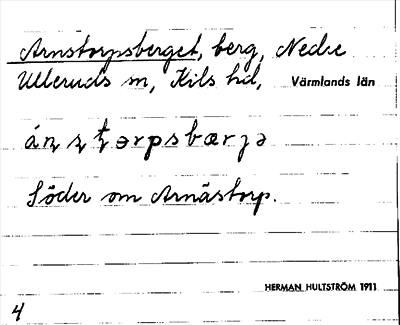 Arnstorpsberget, berg, Nedre
Ulleruds sn, Kils hd, Värmlands län
Söder om Arnästorp.
HERMAN HULTSTRÖM 1911
4